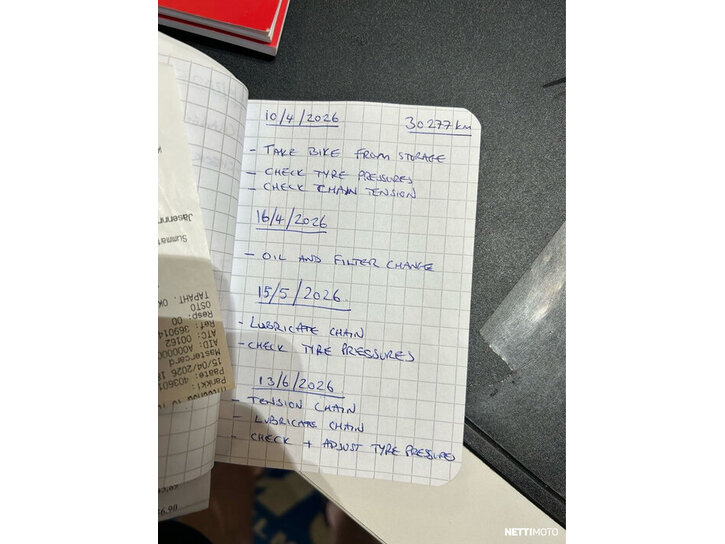 10/4/2026 30277km
- TAKE BIKE FROM STORAGE
- CHECK TYRE PRESSURES
- CHECK CHAIN TENSION
16/4/2026
- OIL AND FILTER CHANGE
15/5/2026
- LUBRICATE CHAIN
- CHECK TYRE PRESSURES
13/6/2026
- TENSION CHAIN
- LUBRICATE CHAIN
- CHECK + ADJUST TYRE PRESSURES
Summa
TAPAHT. OK.
OSTO
Resp: 00
Ref: 369014
ATC: 00162
AID: A000000
Mastercard
15/04/2026
Pääte: 403601
Pankki:
NETTIMOTO